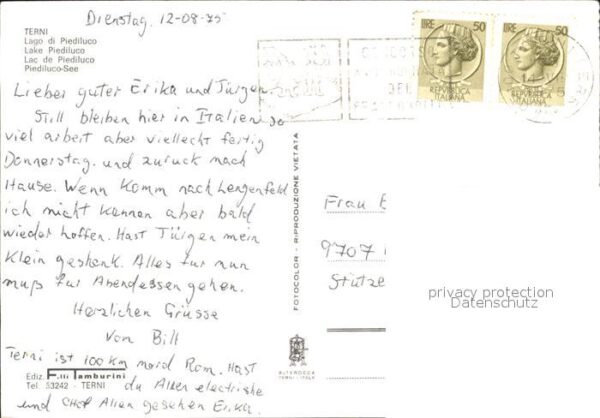 Dienstag. 12-08-75
TERNI
Lago di Piediluco
Lake Piediluco
Lac de Piediluco
Piediluco-See
Lieber guter Erika und Jürgen
Still bleiben hier in Italien so
viel arbeit aber viellecht fertig
Donnerstag. und zurück nach
Hause. Wenn Komm nach Lengenfeld
ich nicht Kennen aber bald
wieder hoffen. Hast Jürgen mein
Klein geshenk. Alles für nun
muß für Abendessen gehen.
Herzlichen Grüsse
Von Bill
Terni ist 100 Km nord Rom. Hast
du Allen electrishe
und Chef Allen gesehen Erika.
Ediz. F.lli Tamburini
Tel. 53242 - TERNI
FOTOCOLOR - RIPRODUZIONE VIETATA
TERNI - ITALY
LIRE 50
REPVBBLICA
ITALIANA
LIRE 50
REPVBBLICA
ITALIANA
Frau E
9707
Stütze
privacy protection
Datenschutz